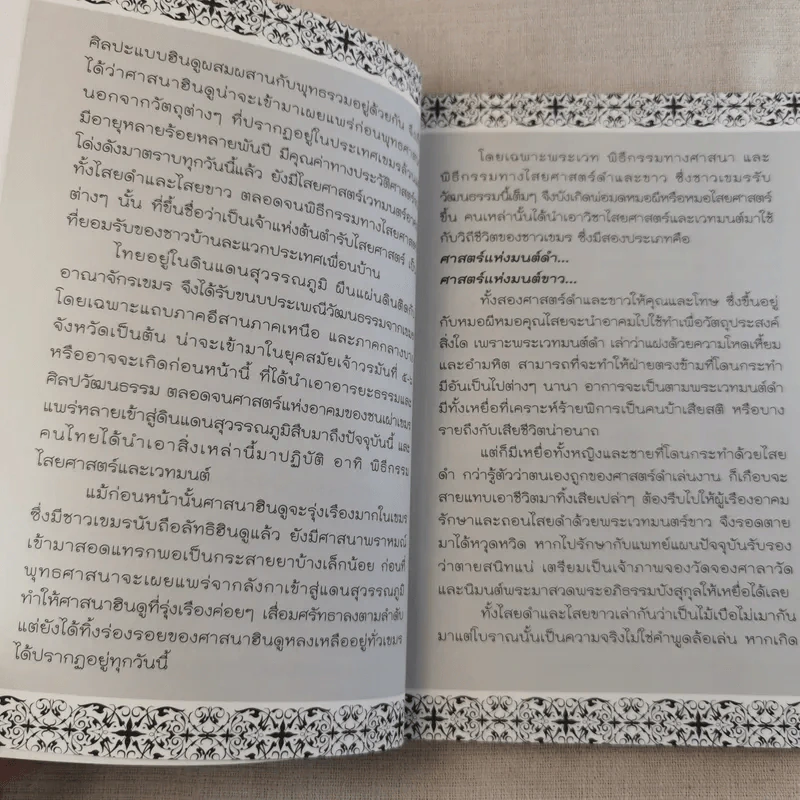 ศิลปะแบบฮินดูผสมผสานกับพุทธรวมอยู่ด้วยกัน
ได้ว่าศาสนาฮินดูน่าจะเข้ามาเผยแพร่ก่อนพุทธศาสนา
นอกจากวัตถุต่างๆ ที่ปรากฏอยู่ในประเทศเขมรแล้ว
มีอายุหลายร้อยหลายพันปี มีคุณค่าทางประวัติศาสตร์
โด่งดังมาตราบทุกวันนี้แล้ว ยังมีไสยศาสตร์เวทมนตร์
ทั้งไสยดำและไสยขาว ตลอดจนพิธีกรรมทางไสยศาสตร์
ต่างๆ นั้น ที่ขึ้นชื่อว่าเป็นเจ้าแห่งต้นตำรับไสยศาสตร์
ที่ยอมรับของชาวบ้านละแวกประเทศเพื่อนบ้าน
ไทยอยู่ในดินแดนสุวรรณภูมิ ผืนแผ่นดินติด
อาณาจักรเขมร จึงได้รับขนบประเพณีวัฒนธรรมจาก
โดยเฉพาะแถบภาคอีสานภาคเหนือ และภาคกลาง
จังหวัดเป็นต้น น่าจะเข้ามาในยุคสมัยเจ้าวรมันที่
หรืออาจจะเกิดก่อนหน้านี้ ที่ได้นำเอาอารยะธรรมและ
ศิลปวัฒนธรรม ตลอดจนศาสตร์แห่งอาคมของชนเผ่าเขมร
แพร่หลายเข้าสู่ดินแดนสุวรรณภูมิสืบมาถึงปัจจุบันนี้ และ
คนไทยได้นำเอาสิ่งเหล่านี้มาปฏิบัติ อาทิ พิธีกรรม
ไสยศาสตร์และเวทมนต์
แม้ก่อนหน้านั้นศาสนาฮินดูจะรุ่งเรืองมากในเขมร
ซึ่งมีชาวเขมรนับถือลัทธิฮินดูแล้ว ยังมีศาสนาพราหมณ์
เข้ามาสอดแทรกพอเป็นกระสายยาบ้างเล็กน้อย ก่อนที่
พุทธศาสนาจะเผยแพร่จากลังกาเข้าสู่แดนสุวรรณภูมิ
ทำให้ศาสนาฮินดูที่รุ่งเรืองค่อยๆ เสื่อมศรัทธาลงตามลำดับ
แต่ยังได้ทิ้งร่องรอยของศาสนาฮินดูหลงเหลืออยู่ทั่วเขมร
ได้ปรากฏอยู่ทุกวันนี้
โดยเฉพาะพระเวท พิธีกรรมทางศาสนา และ
พิธีกรรมทางไสยศาสตร์ดำและขาว ซึ่งชาวเขมรรับ
วัฒนธรรมนี้เต็มๆ จึงบังเกิดพ่อมดหมอผีหรือหมอไสยศาสตร์
ขึ้น คนเหล่านั้นได้นำเอาวิชาไสยศาสตร์และเวทมนต์มาใช้
กับวิถีชีวิตของชาวเขมร ซึ่งมีสองประเภทคือ
ศาสตร์แห่งมนต์ดำ...
ศาสตร์แห่งมนต์ขาว...
ทั้งสองศาสตร์ดำและขาวให้คุณและโทษ ซึ่งขึ้นอยู่
กับหมอผีหมอคุณไสยจะนำอาคมไปใช้ทำเพื่อวัตถุประสงค์
สิ่งใด เพราะพระเวทมนต์ดำ เล่าว่าแฝงด้วยความโหดเหี้ยม
และอำมหิต สามารถที่จะทำให้ฝ่ายตรงข้ามที่โดนกระทำ
มีอันเป็นไปต่างๆ นานา อาการจะเป็นตามพระเวทมนต์ดำ
มีทั้งเหยื่อที่เคราะห์ร้ายพิการเป็นคนบ้าเสียสติ หรือบาง
รายถึงกับเสียชีวิตน่าอนาถ
แต่ก็มีเหยื่อทั้งหญิงและชายที่โดนกระทำด้วยไสย
ดำ กว่ารู้ตัวว่าตนเองถูกของศาสตร์ดำเล่นงาน ก็เกือบจะ
สายแทบเอาชีวิตมาทิ้งเสียเปล่าๆ ต้องรีบไปให้ผู้เรืองอาคม
รักษาและถอนไสยดำด้วยพระเวทมนตร์ขาว จึงรอดตาย
มาได้หวุดหวิด หากไปรักษากับแพทย์แผนปัจจุบันรับรอง
ว่าตายสนิทแน่ เตรียมเป็นเจ้าภาพจองวัดจองศาลาวัด
และนิมนต์พระมาสวดพระอภิธรรมบังสุกุลให้เหยื่อได้เลย
ทั้งไสยดำและไสยขาวเล่ากันว่าเป็นไม้เบื่อไม่เมากัน
มาแต่โบราณนั้นเป็นความจริงไม่ใช่คำพูดล้อเล่น หากเกิด